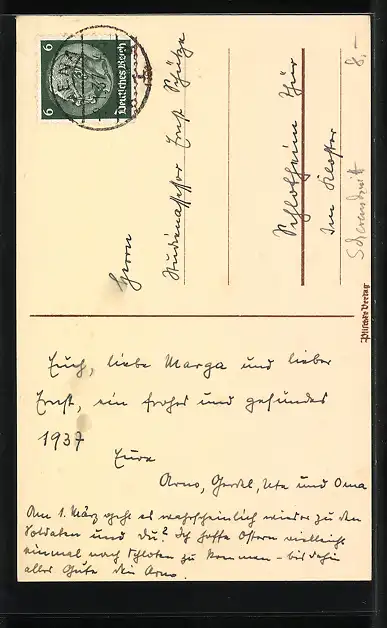 6 Deutsches Reich 6
JENA
Herrn
Studienassessor Ernst Schütze
Schlotheim Thür
Im Kloster
8,–
Scherenschnitt
Plischke Verlag
Euch, liebe Marga und lieber
Ernst, ein frohes und gesundes
1937
Eure
Arno, Gretel, Ute und Oma
Am 1. März gehe es wahrscheinlich wieder zu den
Soldaten und du? Ich hoffe Ostern vielleicht
einmal nach Schloten zu kommen – bis dahin
alles Gute dein Arno.